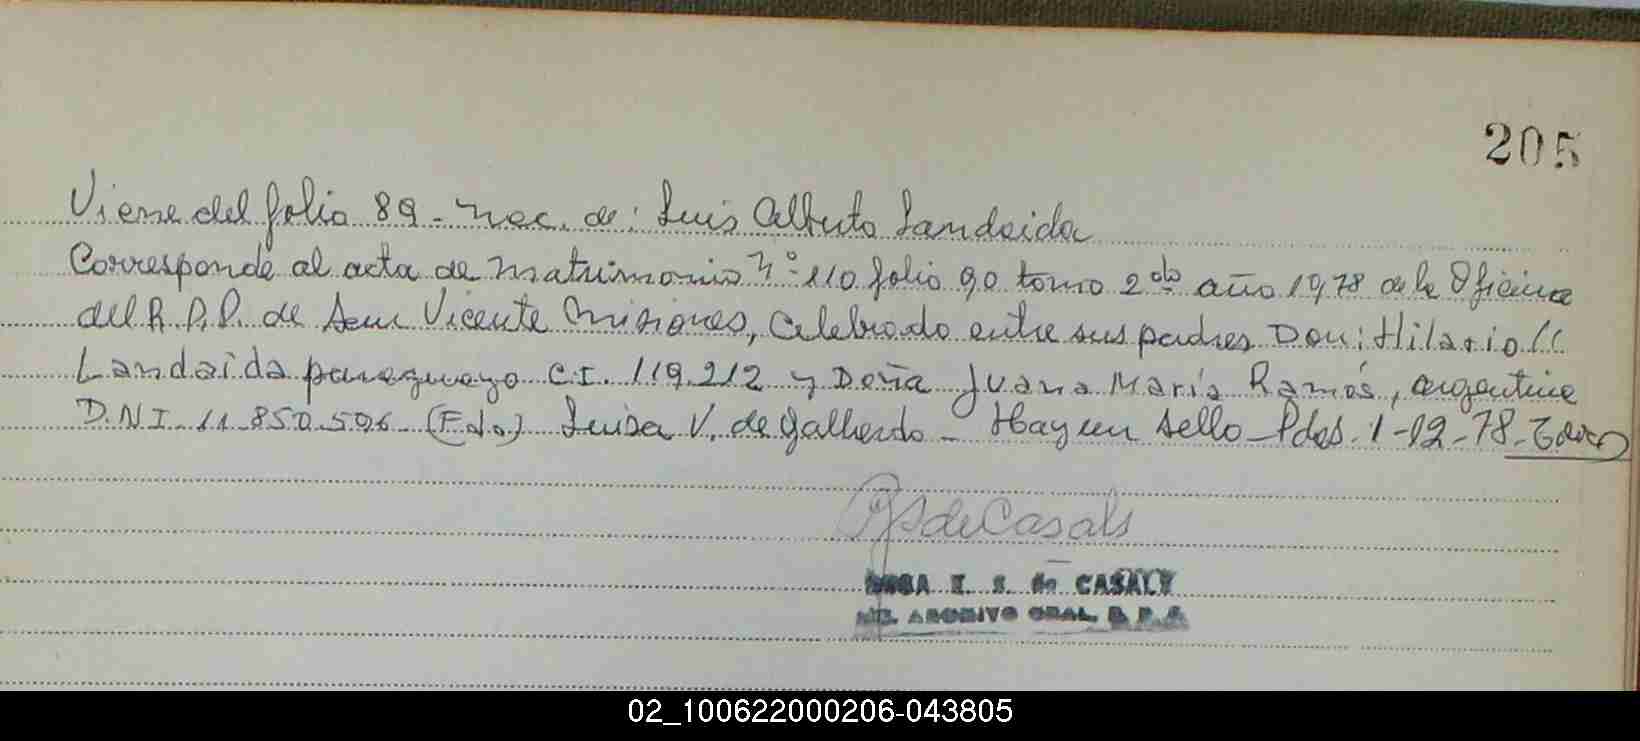 205
Viene del folio 89 - Nac. de: Luis Alberto Landaida
Corresponde al acta de matrimonio Nº 110 folio 90 tomo 2do año 1978 de la Oficina
del R.P.P. de San Vicente Misiones, celebrado entre sus padres Don: Hilario
Landaida paraguayo C.I. 119.212 y Doña Juana María Ramos, argentina
D.N.I. 11.850.596 - (Fdo) Luisa V. de Galhardo - Hay un sello - Pdas. 1-12-78-
de Casals
E. S. de CASALS
ARCHIVO GRAL. R. P. P.
02_100622000206-043805